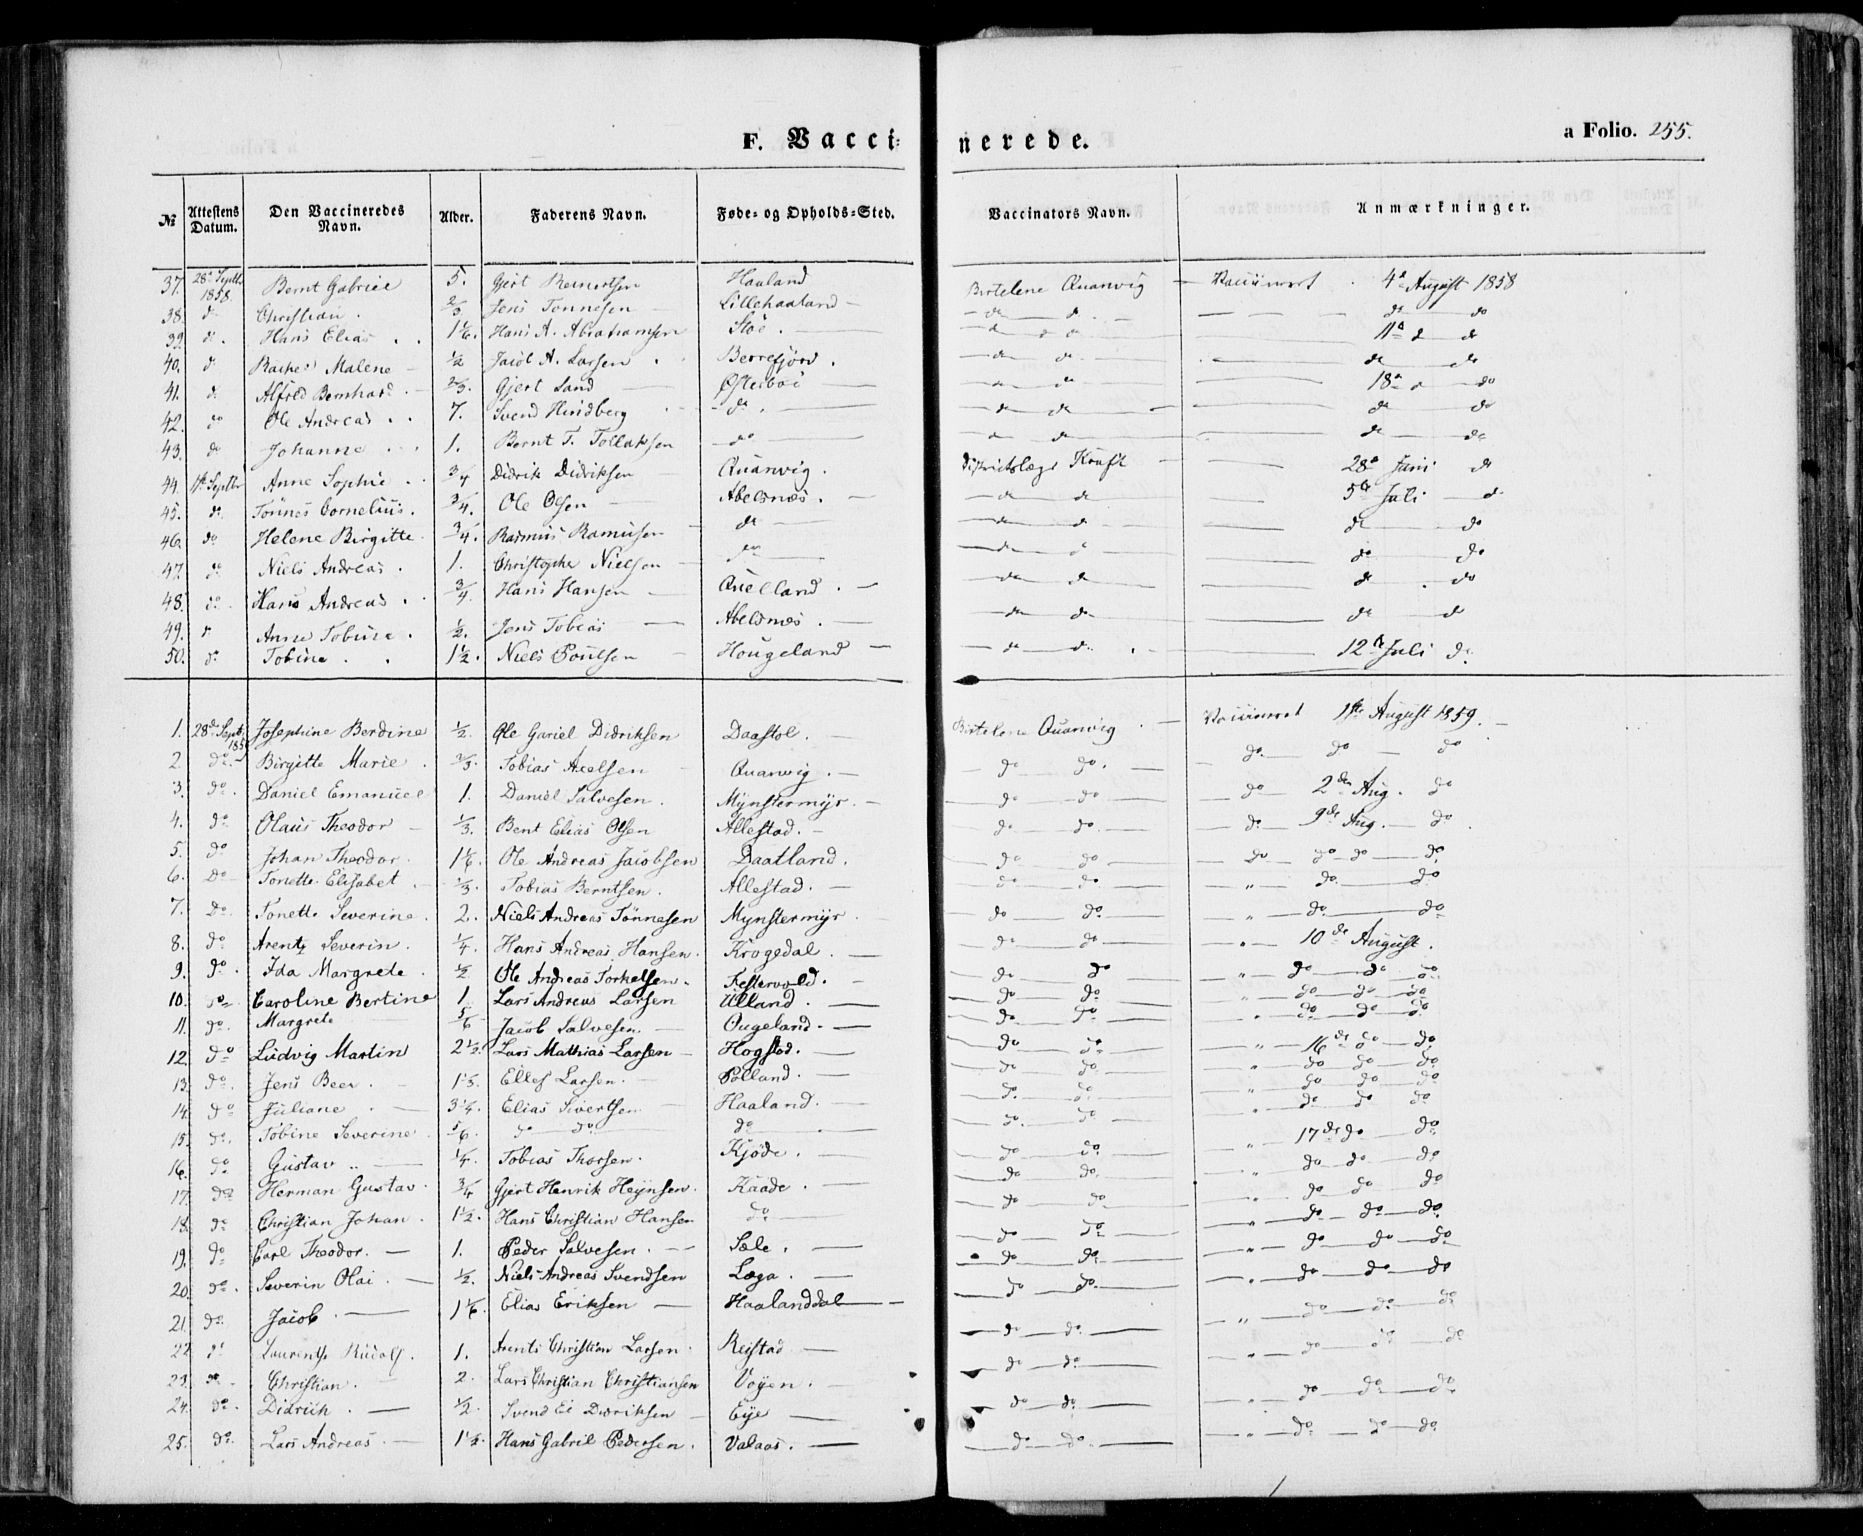 F. Vaccinerede.
a Folio. 255.
№ Attestens Datum. Den Vaccineredes Navn. Alder. Faderens Navn. Føde- og Opholds-Sted. Vaccinators Navn. Anmærkninger.
37. 28de Septbr 1858. Bernt Gabriel 5. Gjert Reinertsen Haaland Birtelene Quanvig — 4de August 1858
38. do Christian. 2/3 Jens Tønnesen Lillehaaland — do do — do do
39. do. Hans Elias 1 1/6. Hans A. Abrahamsen Stoe. — do do — 11te do do
40. do Rachel Malene 1/2 Jacob A. Larsen Berrefjord. — do do — do do
41. do Alfred Bernhard 2/3. Gjert Sand — do do — 18de do do
42. do Ole Andreas 7. Svend Hindberg — do. — do do — do do
43. do Johanne 1. Bernt T. Tollaksen — do — do do — do do
44. Septbr Anne Sophie 3/4 Didrik Didriksen Quanvig. Districtslæge Kraft — 28de Juni do
45. do. Tønnes Cornelius. 3/4. Ole Olsen Abelsnæs. — do do — 5te Juli do
46. do Helene Birgitte. 3/4. Rasmus Rasmusen do — do do — do do
47. do Niels Andreas. 1. Christopher Nielsen do — do do — do do
48. do. Hans Andreas. 3/4. Hans Hansen Quelland. — do do — do do
49. do Anne Tobine. 1/2. Jens Tobias Abelsnæs. — do do — do do
50. do Tobine. 1 1/2. Niels Poulsen — Hougeland — do do. — 12te Juli do.
1. 28de Septb. 185 Josephine Berdine 1/2. Ole Gariel Didriksen Daastol. — Birtelene Quanvig. — 1ste August 1859.
2. do. Birgitte Marie. 2/3. Tobias Axelsen Quanvig. — do do. — do. do — do
3. do. Daniel Emanuel 1. Daniel Salvesen. Mynstermyr. — do do — do — 2den Aug. do
4. do Olaus Theodor — 1/3. Bent Elias Olsen Allestad. — do do. — do — 9de Aug. — do.
5. do Johan Theodor. 1 1/6. Ole Andreas Jacobsen Daatland. do do — do — do do — do
6. do Tonette Elisabet. 1/3. Tobias Berntsen. Allestad. — do do — " — do. — do
7. do. Tonette Severine. 2. Niels Andreas Tønnesen Mynstermyr do do — " — do — do
8. do Arent Severin. 1/4. Hans Andreas Hansen. Krogedal. — do do — " — 10de August.
9. do. Ida Margrete. 1/2 Ole Andreas Torkelsen. Festervold. — do do — " — do — do do
10. do Caroline Bertine 1. Lars Andreas Larsen Ulland. — do do — " — do do do
11. do. Margrete 5/6 Jacob Salvesen. — Ougeland. — do do — " — do do do
12. do Ludvig Martin 2 1/2. Lars Mathias Larsen — Hogstad. — do do — " — 16de do — do
13. do. Jens Beer. — 1 1/3. Ellef Larsen. — Polland. — do do. — " do do — do
14. do Juliane. — 3 1/4. Elias Sivertsen Haaland. — do. do — " do do do
15. do. Tobine Severine. 5/6. do — do do — do. do — do do do
16. do Gustav.. — 1/4. Tobias Thorsen. Kjøde. — do do. — " — 17de do — do
17. do Herman Gustav. 3/4 Gjert Henrik Heynsen. Kaade. — do do. — do do — do
18. do Christian Johan. 1 1/2. Hans Christian Hansen do — do do — " — do do do
19. do Carl Theodor. — 1. Peder Salvesen. — Sæle. — do do — " — do — do — do
20. do. Severin Olai. — 1/2. Niels Andreas Svendsen Lega. — do do — " — do do — do
21. do. Jacob. — 1 1/6. Elias Eriksen — Haalanddal — do do. — " — do — do — do
22. do Laurents Rudolf. 1. Arents Christian Larsen. Reistad — do do. — " — do — do — do
23. do. Christian. — 2. Lars Christian Christiansen Voyen. — do do — " — do do — do
24. do. Didrich. — 1/2. Svend El Didriksen — Eye — do do. — " — do — do — do
25. do. Lars Andreas. — 1 1/2. Hans Gabriel Pedersen. Valaas. — do do. — " — do — do — do